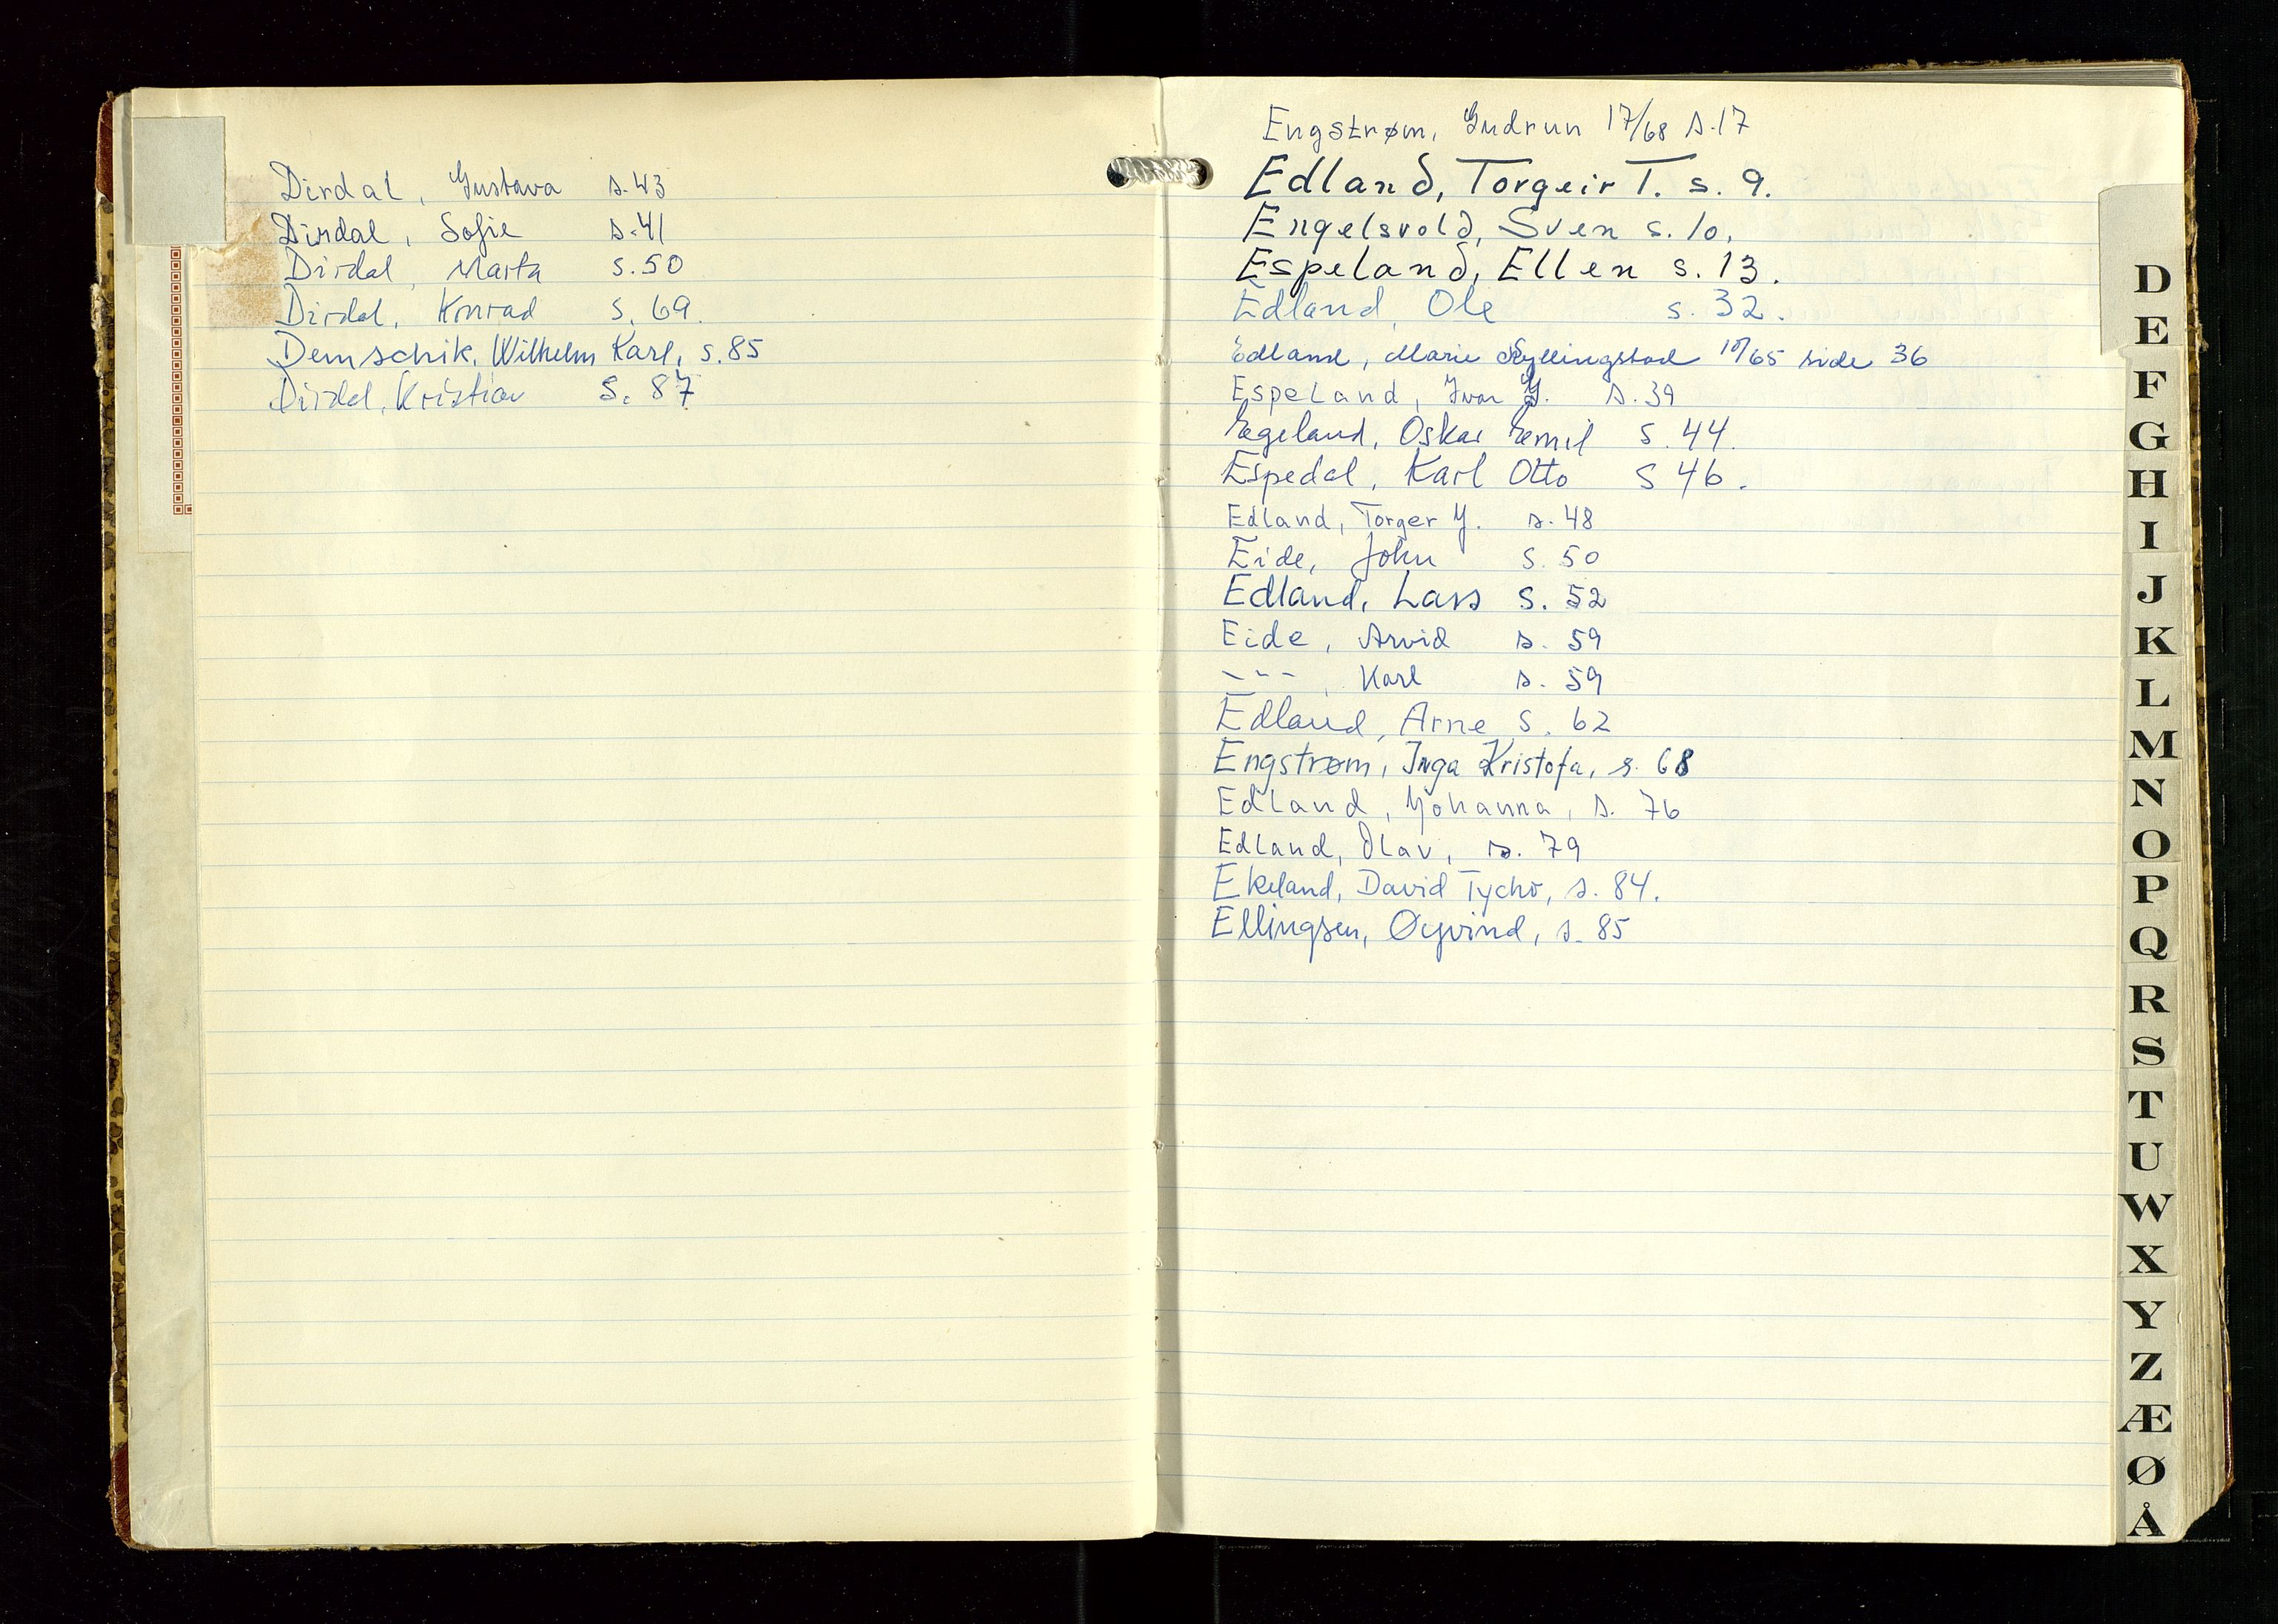 Dirdal, Gustava s. 43
Dirdal, Sofie s. 41
Dirdal, Marta s. 50
Dirdal, Konrad s. 69.
Demschik, Wilhelm Karl, s. 85
Dirdal, Kristian s. 87
Engstrøm, Gudrun 17/68 s. 17
Edland, Torgeir T. s. 9.
Engelsvold, Sven s. 10.
Espeland, Ellen s. 13.
Edland, Ole s. 32.
Edland, Marie Kyllingstad 10/65 side 36
Espeland, Ivar J. s. 39
Egeland, Oskar Emil s. 44.
Espedal, Karl Otto s 46.
Edland, Torger J. s. 48
Eide, John s. 50
Edland, Lars s. 52
Eide, Arvid s. 59
---, Karl s. 59
Edland, Arne s. 62
Engstrøm, Inga Kristofa, s. 68
Edland, Johanna, s. 76
Edland, Olav, s. 79
Ekeland, David Tycho, s. 84.
Ellingsen, Øyvind, s. 85
D
E
F
G
H
I
J
K
L
M
N
O
P
Q
R
S
T
U
W
X
Y
Z
Æ
Ø
Å